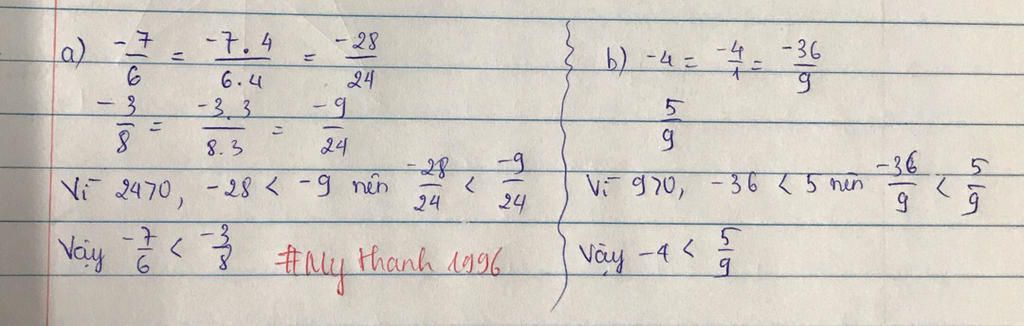 a) -7/6 = -7.4/6.4 = -28/24
-3/8 = -3.3/8.3 = -9/24
Vì 24>0, -28 < -9 nên -28/24 < -9/24
Vậy -7/6 < -3/8
#My thanh 1996
b) -4 = -4/1 = -36/9
5/9
Vì 9>0, -36 < 5 nên -36/9 < 5/9
Vậy -4 < 5/9